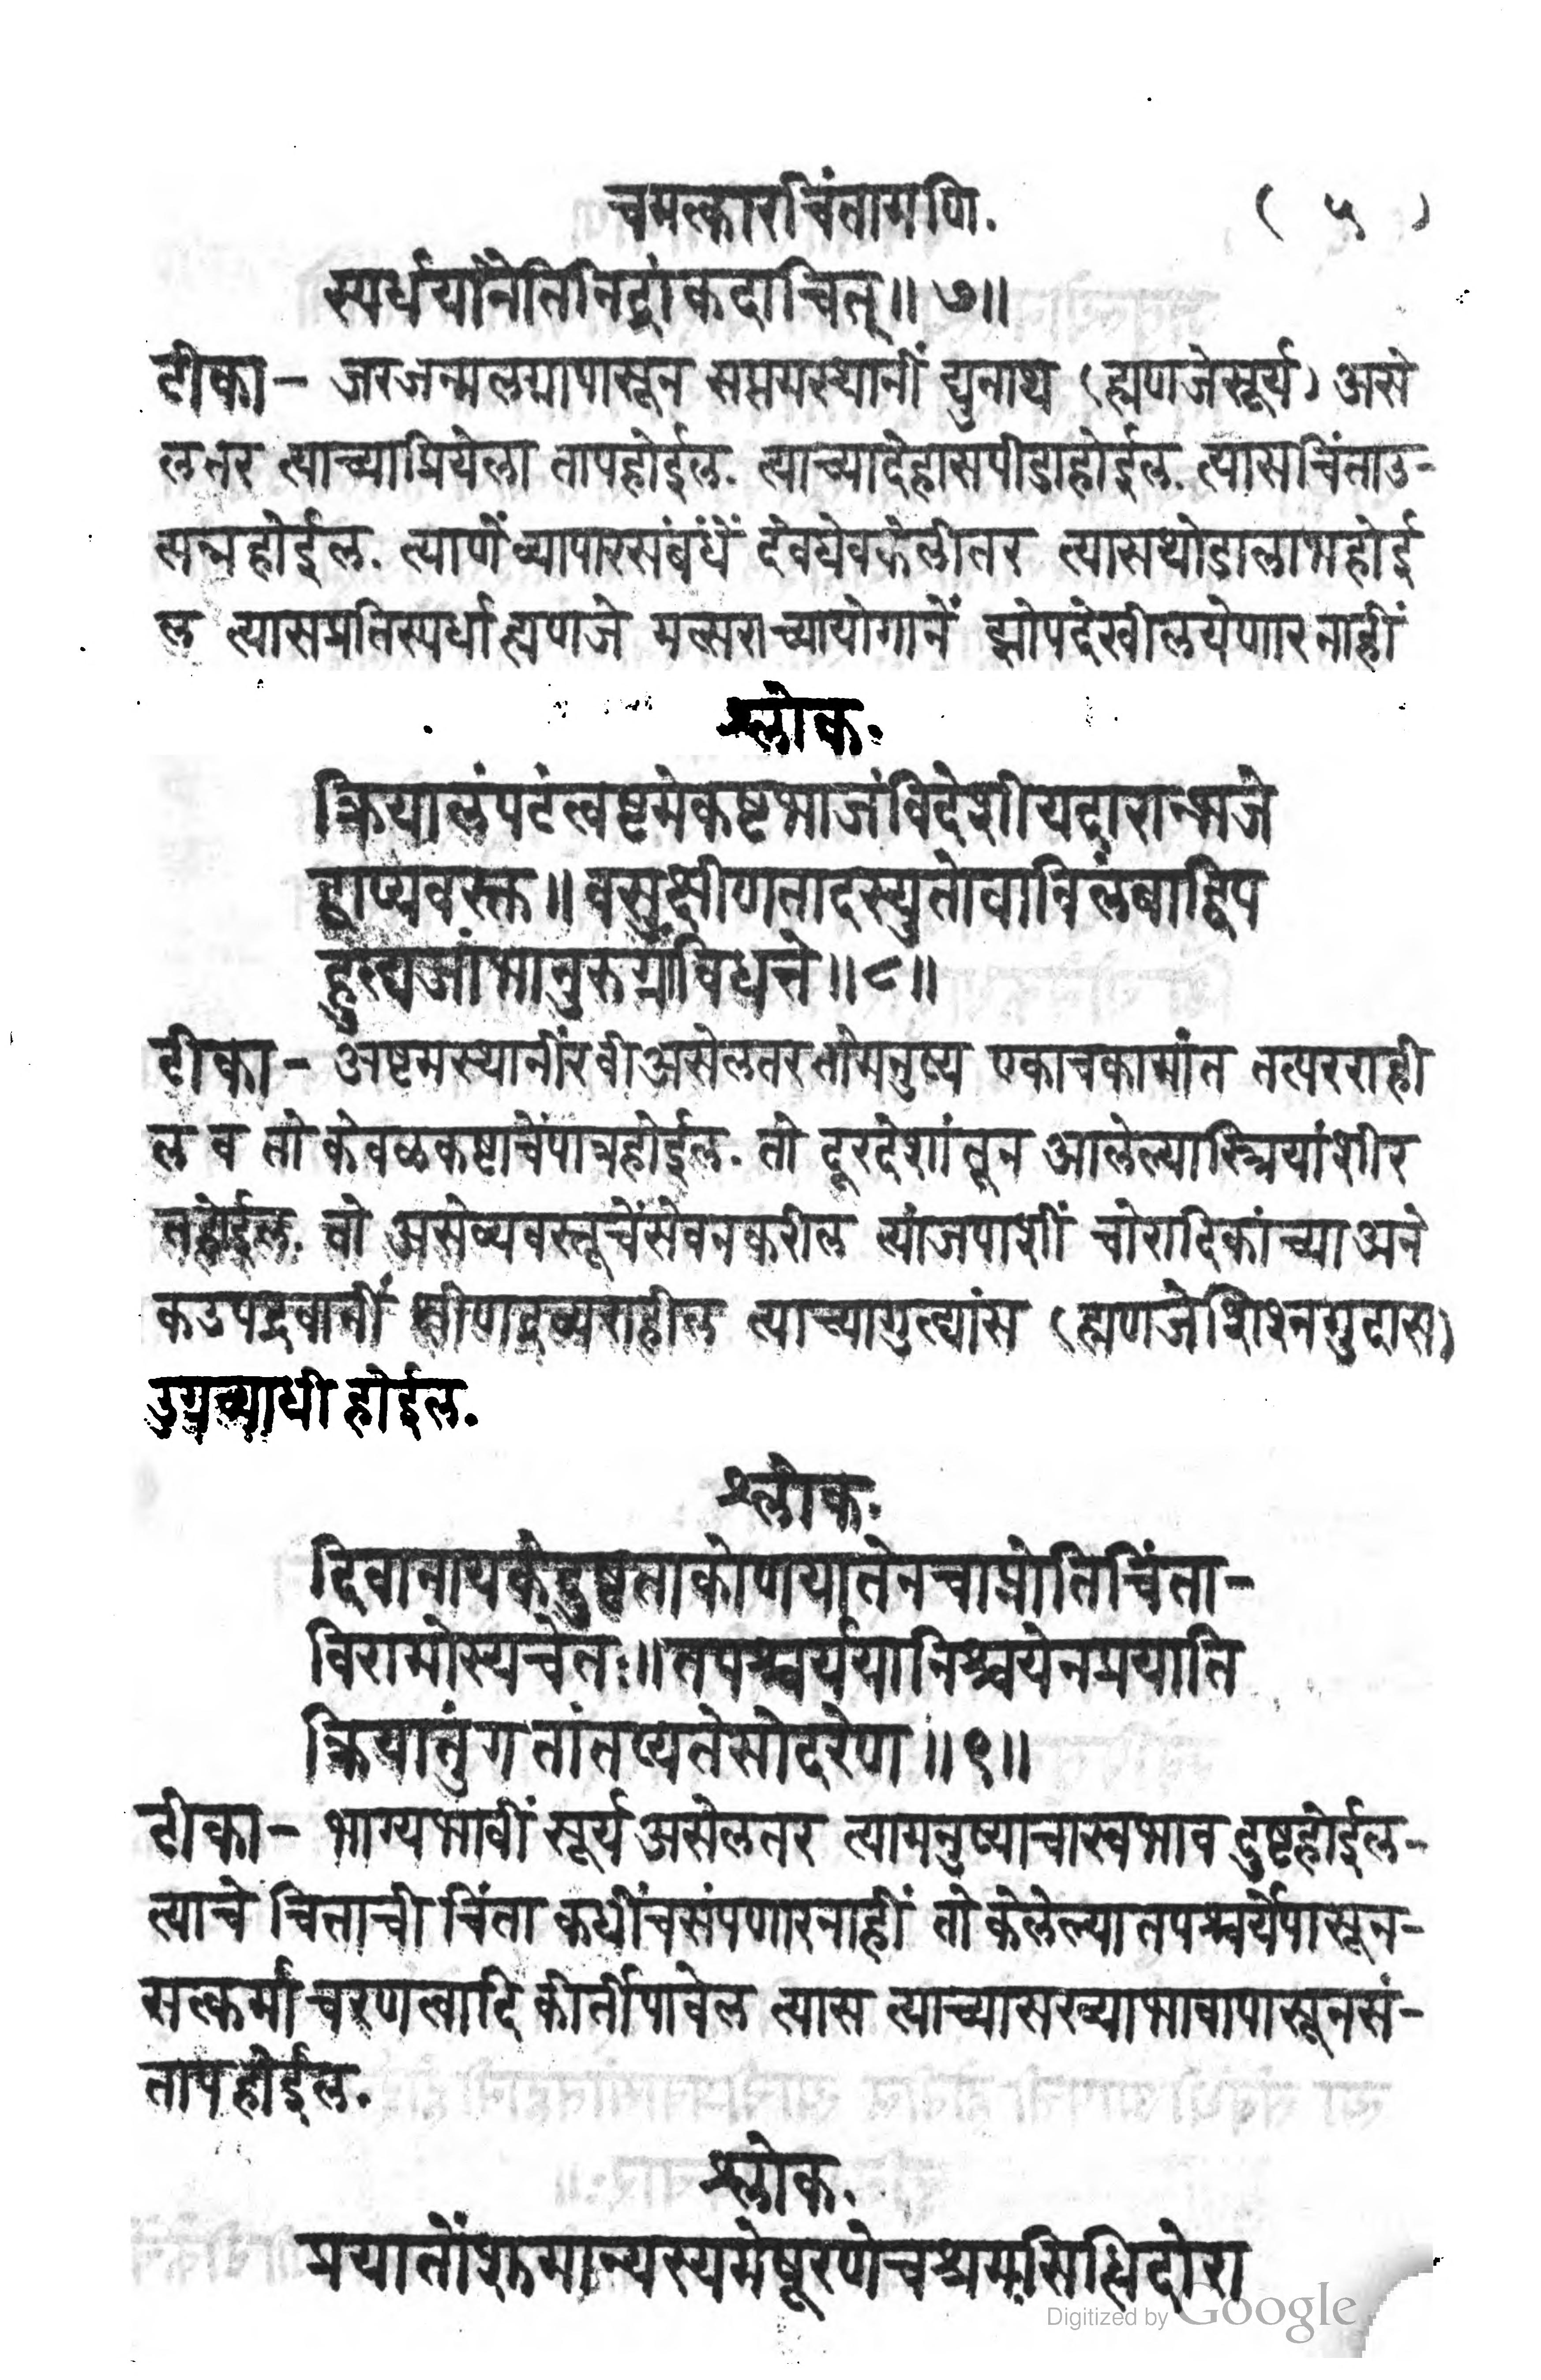 चमत्कारचिंतामणि. ( ५ )
स्पर्धयांनेतिनिद्रांकदाचित् ॥ ७ ॥
टीका - जरजन्मलग्नापासून सप्तमस्थानीं द्युनाथ (ह्मणजेसूर्य) असे
लतर त्याच्याप्रियेला तापहोईल. त्याच्यादेहासपीडाहोईल. त्यासचिंताउ-
त्पन्नहोईल. त्याणेंव्यापारसंबंधें देवघेवकेलीतर त्यासथोडालाभहोई
ल त्यासप्रतिस्पर्धाह्मणजे मत्सराच्यायोगानें झोपदेखीलयेणारनाहीं
श्लोक.
क्रियालंपटंत्वष्टमेकष्टभाजंविदेशीयदारान्भजे
द्वाप्यवस्तू ॥ वसुक्षीणतादस्युतोवाविलंबाद्विप
द्गुह्यजांभानुरुग्रांविधत्ते ॥ ८ ॥
टीका - अष्टमस्थानींरवीअसेलतरतोमनुष्य एकाचकामांत तत्परराही
ल व तो केवळकष्टाचेंपात्रहोईल. तो दूरदेशांतून आलेल्यास्त्रियांशीर
तहोईल. तो असेव्यवस्तूचेंसेवनकरील त्यांजपाशीं चोरादिकांच्याअने
कउपद्रवानीं क्षीणद्रव्यराहील त्याच्यागुह्यांस (ह्मणजेशिश्नगुदास)
उग्रव्याधी होईल.
श्लोक.
दिवानायकेदुष्टताकोणयातेनचाप्नोतिचिंता-
विरामोस्यचेतः ॥ तपश्चर्ययानिश्चयेनप्रयाति
क्रियातुंगतांतप्यतेसोदरेण ॥ ९ ॥
टीका - भाग्यभावीं सूर्यअसेलतर त्यामनुष्याचास्वभाव दुष्टहोईल-
त्याचे चित्ताची चिंता कधींचसंपणारनाहीं तो केलेल्यातपश्चर्येपासून-
सत्कर्माचरणत्वादि कीर्तीपावेल त्यास त्याच्यासख्याभावापासूनसं-
तापहोईल.
श्लोक.
प्रयातोंशुमान्यस्यमेषूरणेचश्रमःसिद्धिदोरा
Digitized by Google